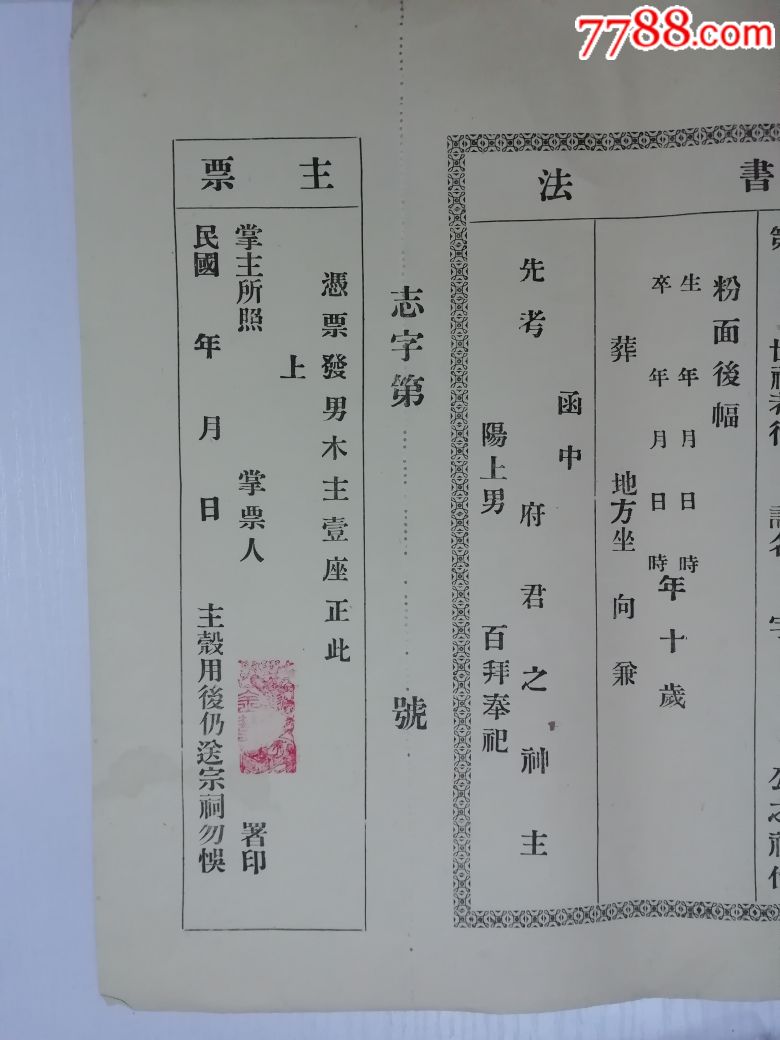 7788.com
書法
粉面後幅
生 年 月 日 時
卒 年 月 日 時
年 十 歲
葬 地方坐 向 兼
函中
先考 府君之神主
陽上男 百拜奉祀
志字第 號
主票
憑票發男木主壹座正此
上
掌主所照 掌票人 署印
民國 年 月 日 主殼用後仍送宗祠勿悞